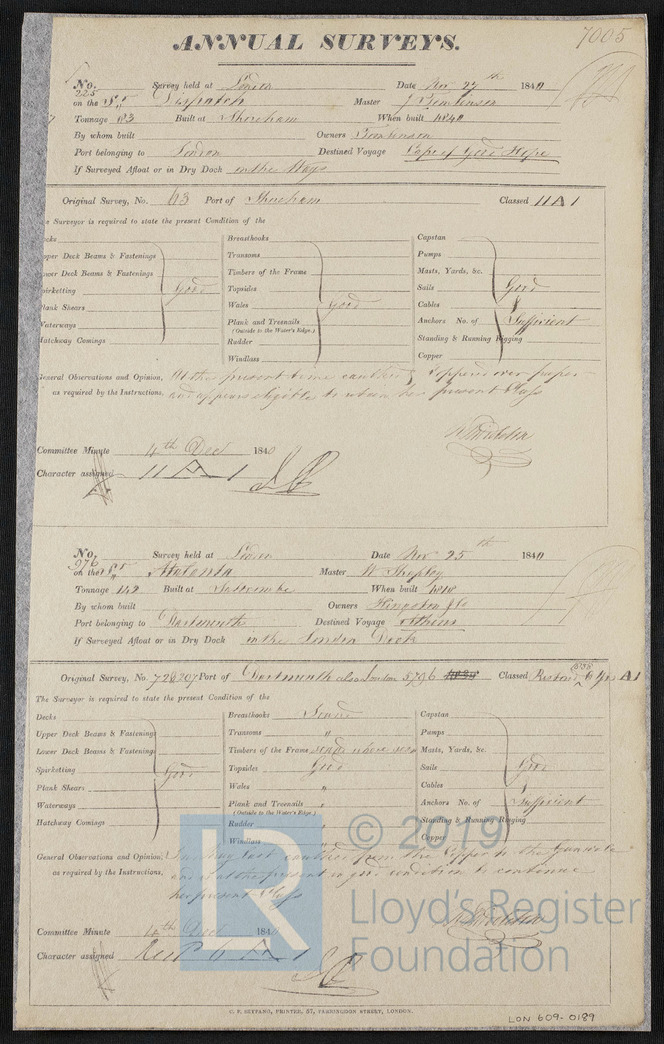 ANNUAL SURVEYS.
7005
No. 225 Survey held at London Date Nov 27th 1840
on the Despatch Master J Tomlinson
Tonnage 183 Built at Shoreham When built 1840
By whom built Owners Tomlinson
Port belonging to London Destined Voyage Cape of Good Hope
If Surveyed Afloat or in Dry Dock on the Ways
Original Survey, No. 63 Port of Shoreham Classed 11 A 1
e Surveyor is required to state the present Condition of the
ecks Breasthooks Capstan
pper Deck Beams & Fastenings Transoms Pumps
ower Deck Beams & Fastenings Timbers of the Frame Masts, Yards, &c.
pirketting Good Topsides Sails Good
lank Shears Wales Good Cables
Waterways Plank and Treenails Anchors No. of Sufficient
(Outside to the Water's Edge.)
Hatchway Comings Rudder Standing & Running Rigging
Windlass Copper
General Observations and Opinion, At the present time caulked & coppered over paper
as required by the Instructions, and appears eligible to retain her present Class
Committee Minute 4th Dec 1840
Character assigned 11 A 1
No. 976 Survey held at London Date Nov 25th 1840
on the Atalanta Master W Shapley
Tonnage 142 Built at Salcombe When built 1818
By whom built Owners Kingston & Co
Port belonging to Dartmouth Destined Voyage Athens
If Surveyed Afloat or in Dry Dock in the London Dock
Original Survey, No. 726 207 Port of Dartmouth also London 5796 Classed Restored 1838 6 Yrs A 1
The Surveyor is required to state the present Condition of the
Decks Breasthooks Sound Capstan
Upper Deck Beams & Fastenings Transoms " Pumps
Lower Deck Beams & Fastenings Timbers of the Frame sound where seen Masts, Yards, &c.
Spirketting Good Topsides Good Sails Good
Plank Shears Wales " Cables
Waterways Plank and Treenails " Anchors No. of Sufficient
(Outside to the Water's Edge.)
Hatchway Comings Rudder " Standing & Running Rigging
Windlass " Copper
General Observations and Opinion, caulked from the Copper to the Gunwale
as required by the Instructions, and is at the present in good condition to continue
her present Class
Committee Minute 4th Dec 1840
Character assigned Rest 6 A 1
© 2019
LR
Lloyd's Register
Foundation
C. F. SEYFANG, PRINTER, 57, FARRINGDON STREET, LONDON.
LON 609-0189